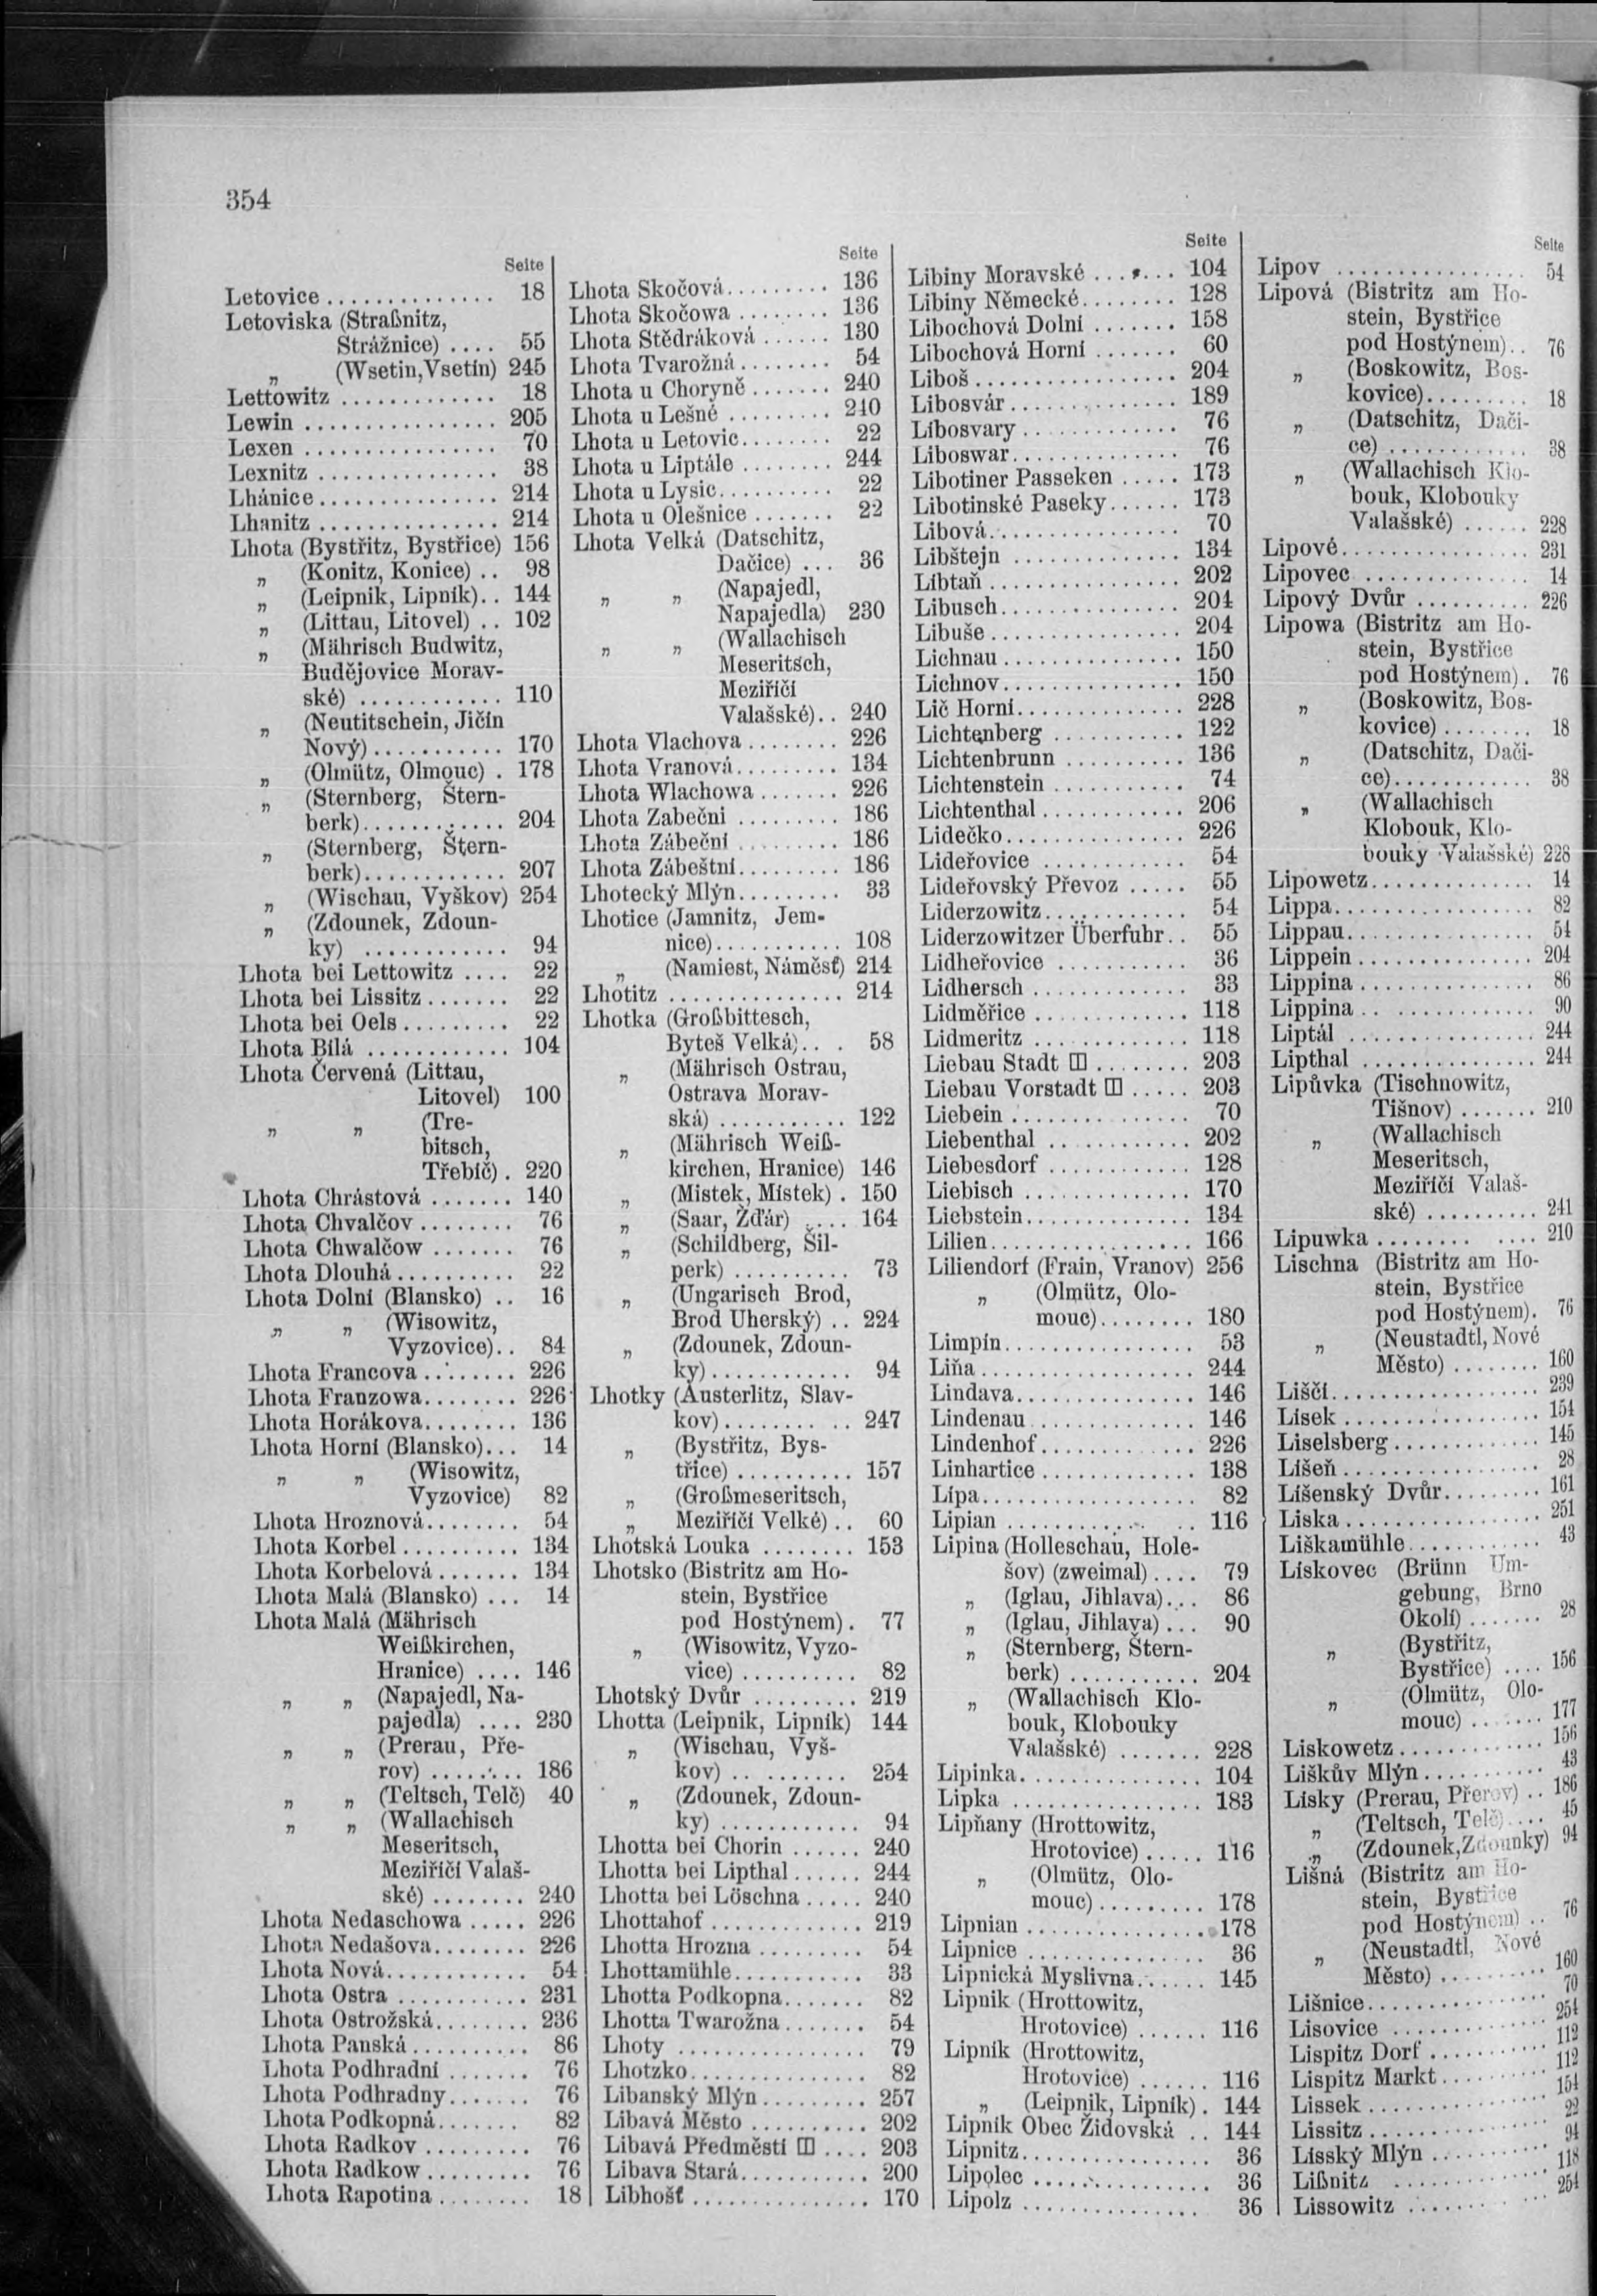 354
Seite
Letovice ............... 18
Letoviska (Straßnitz,
Strážnice) .... 55
„ (Wsetin, Vsetín) 245
Lettowitz ............. 18
Lewin ................ 205
Lexen ................ 70
Lexnitz ............... 38
Lhánice ............... 214
Lhanitz ............... 214
Lhota (Bystřitz, Bystřice) 156
„ (Konitz, Konice) .. 98
„ (Leipnik, Lipník) .. 144
„ (Littau, Litovel) .. 102
„ (Mährisch Budwitz,
Budějovice Morav-
ské) ............ 110
„ (Neutitschein, Jičín
Nový) ........... 170
„ (Olmütz, Olmouc) . 178
„ (Sternberg, Štern-
berk) ............ 204
„ (Sternberg, Štern-
berk) ............ 207
„ (Wischau, Vyškov) 254
„ (Zdounek, Zdoun-
ky) ............ 94
Lhota bei Lettowitz .... 22
Lhota bei Lissitz ....... 22
Lhota bei Oels ......... 22
Lhota Bílá ............ 104
Lhota Červená (Littau,
Litovel) 100
„ „ (Tre-
bitsch,
Třebíč) . 220
Lhota Chrástová ....... 140
Lhota Chvalčov ........ 76
Lhota Chwalčow ....... 76
Lhota Dlouhá .......... 22
Lhota Dolní (Blansko) .. 16
„ „ (Wisowitz,
Vyzovice) .. 84
Lhota Francova ........ 226
Lhota Franzowa ........ 226
Lhota Horákova ........ 136
Lhota Horní (Blansko) ... 14
„ „ (Wisowitz,
Vyzovice) 82
Lhota Hroznová ........ 54
Lhota Korbel .......... 134
Lhota Korbelová ....... 134
Lhota Malá (Blansko) ... 14
Lhota Malá (Mährisch
Weißkirchen,
Hranice) .... 146
„ „ (Napajedl, Na-
pajedla) .... 230
„ „ (Prerau, Pře-
rov) ........ 186
„ „ (Teltsch, Telč) 40
„ „ (Wallachisch
Meseritsch,
Meziříčí Valaš-
ské) ........ 240
Lhota Nedaschowa ..... 226
Lhota Nedašova ........ 226
Lhota Nová ............ 54
Lhota Ostra ........... 231
Lhota Ostrožská ........ 236
Lhota Panská .......... 86
Lhota Podhradní ....... 76
Lhota Podhradny ....... 76
Lhota Podkopná ....... 82
Lhota Radkov ......... 76
Lhota Radkow ......... 76
Lhota Rapotina ........ 18
Seite
Lhota Skočová ......... 136
Lhota Skočowa ........ 136
Lhota Stědráková ...... 130
Lhota Tvarožná ........ 54
Lhota u Choryně ....... 240
Lhota u Lešné ......... 240
Lhota u Letovic ........ 22
Lhota u Liptále ........ 244
Lhota u Lysic .......... 22
Lhota u Olešnice ....... 22
Lhota Velká (Datschitz,
Dačice) ... 36
„ „ (Napajedl,
Napajedla) 230
„ „ (Wallachisch
Meseritsch,
Meziříčí
Valašské) .. 240
Lhota Vlachova ........ 226
Lhota Vranová ......... 134
Lhota Wlachowa ....... 226
Lhota Zabeční ......... 186
Lhota Zábeční ......... 186
Lhota Zábeštní ......... 186
Lhotecký Mlýn ......... 33
Lhotice (Jamnitz, Jem-
nice) ........... 108
„ (Namiest, Náměsť) 214
Lhotitz ............... 214
Lhotka (Großbittesch,
Byteš Velká) .. . 58
„ (Mährisch Ostrau,
Ostrava Morav-
ská) ........... 122
„ (Mährisch Weiß-
kirchen, Hranice) 146
„ (Mistek, Místek) . 150
„ (Saar, Žďár) .... 164
„ (Schildberg, Šil-
perk) .......... 73
„ (Ungarisch Brod,
Brod Uherský) .. 224
„ (Zdounek, Zdoun-
ky) ............ 94
Lhotky (Austerlitz, Slav-
kov) ........... 247
„ (Bystřitz, Bys-
třice) .......... 157
„ (Großmeseritsch,
„ Meziříčí Velké) .. 60
Lhotská Louka ........ 153
Lhotsko (Bistritz am Ho-
stein, Bystřice
pod Hostýnem) . 77
„ (Wisowitz, Vyzo-
vice) .......... 82
Lhotský Dvůr ......... 219
Lhotta (Leipnik, Lipník) 144
„ (Wischau, Vyš-
kov) .......... 254
„ (Zdounek, Zdoun-
ky) ............ 94
Lhotta bei Chorin ...... 240
Lhotta bei Lipthal ...... 244
Lhotta bei Löschna ..... 240
Lhottahof ............. 219
Lhotta Hrozna ......... 54
Lhottamühle ........... 33
Lhotta Podkopna ....... 82
Lhotta Twarožna ....... 54
Lhoty ................ 79
Lhotzko ............... 82
Libanský Mlýn ......... 257
Libavá Město .......... 202
Libavá Předměstí ⊞ .... 203
Libava Stará ........... 200
Libhošť ............... 170
Seite
Libiny Moravské ....... 104
Libiny Německé ........ 128
Libochová Dolní ....... 158
Libochová Horní ....... 60
Liboš ................. 204
Libosvár .............. 189
Libosvary ............. 76
Liboswar .............. 76
Libotiner Passeken ..... 173
Libotinské Paseky ...... 173
Libová ................ 70
Libštejn .............. 134
Libtaň ................ 202
Libusch ............... 204
Libuše ................ 204
Lichnau ............... 150
Lichnov ............... 150
Lič Horní .............. 228
Lichtenberg ........... 122
Lichtenbrunn .......... 136
Lichtenstein ........... 74
Lichtenthal ............ 206
Lidečko ............... 226
Lideřovice ............ 54
Lideřovský Převoz ..... 55
Liderzowitz ............ 54
Liderzowitzer Überfuhr .. 55
Lidheřovice ........... 36
Lidhersch ............. 33
Lidměřice ............. 118
Lidmeritz ............. 118
Liebau Stadt ⊞ ........ 203
Liebau Vorstadt ⊞ ..... 203
Liebein ............... 70
Liebenthal ............ 202
Liebesdorf ............ 128
Liebisch .............. 170
Liebstein .............. 134
Lilien ................. 166
Liliendorf (Frain, Vranov) 256
„ (Olmütz, Olo-
mouc) ........ 180
Limpín ................ 53
Liňa .................. 244
Lindava ............... 146
Lindenau .............. 146
Lindenhof ............. 226
Linhartice ............. 138
Lípa .................. 82
Lipian ................ 116
Lipina (Holleschau, Hole-
šov) (zweimal) .... 79
„ (Iglau, Jihlava) ... 86
„ (Iglau, Jihlava) ... 90
„ (Sternberg, Štern-
berk) ........... 204
„ (Wallachisch Klo-
bouk, Klobouky
Valašské) ....... 228
Lipinka ............... 104
Lipka ................ 183
Lipňany (Hrottowitz,
Hrotovice) ..... 116
„ (Olmütz, Olo-
mouc) ......... 178
Lipnian ............... 178
Lipnice ............... 36
Lipnická Myslivna ...... 145
Lipnik (Hrottowitz,
Hrotovice) ...... 116
Lipník (Hrottowitz,
Hrotovice) ...... 116
„ (Leipnik, Lipník) . 144
Lipník Obec Židovská .. 144
Lipnitz ................ 36
Lipolec ............... 36
Lipolz ................ 36
Seite
Lipov ................ 54
Lipová (Bistritz am Ho-
stein, Bystřice
pod Hostýnem) .. 76
„ (Boskowitz, Bos-
kovice) ......... 18
„ (Datschitz, Dači-
ce) ............ 38
„ (Wallachisch Klo-
bouk, Klobouky
Valašské) ...... 228
Lipové ................ 231
Lipovec .............. 14
Lipový Dvůr .......... 226
Lipowa (Bistritz am Ho-
stein, Bystřice
pod Hostýnem) . 76
„ (Boskowitz, Bos-
kovice) ........ 18
„ (Datschitz, Dači-
ce) ............ 38
„ (Wallachisch
Klobouk, Klo-
bouky Valašské) 228
Lipowetz .............. 14
Lippa ................. 82
Lippau ................ 54
Lippein ............... 204
Lippina ............... 86
Lippina ............... 90
Liptál ................ 244
Lipthal ............... 244
Lipůvka (Tischnowitz,
Tišnov) ....... 210
„ (Wallachisch
Meseritsch,
Meziříčí Valaš-
ské) .......... 241
Lipuwka .............. 210
Lischna (Bistritz am Ho-
stein, Bystřice
pod Hostýnem) . 76
„ (Neustadtl, Nové
Město) ........ 160
Liščí .................. 239
Lísek ................. 154
Liselsberg ............. 145
Líšeň ................. 28
Líšenský Dvůr ......... 161
Liska ................. 251
Liškamühle ............ 43
Lískovec (Brünn Um-
gebung, Brno
Okolí) ....... 28
„ (Bystřitz,
Bystřice) .... 156
„ (Olmütz, Olo-
mouc) ....... 177
Liskowetz ............. 156
Liškův Mlýn ........... 43
Lísky (Prerau, Přerov) .. 186
„ (Teltsch, Telč) .... 45
„ (Zdounek, Zdounky) 94
Lišná (Bistritz am Ho-
stein, Bystřice
pod Hostýnem) .. 76
„ (Neustadtl, Nové
Město) ......... 160
Lišnice ................ 70
Lisovice .............. 254
Lispitz Dorf ........... 112
Lispitz Markt .......... 112
Lissek ................ 154
Lissitz ................ 22
Lísský Mlýn ........... 94
Lißnitz ............... 118
Lissowitz ............. 254